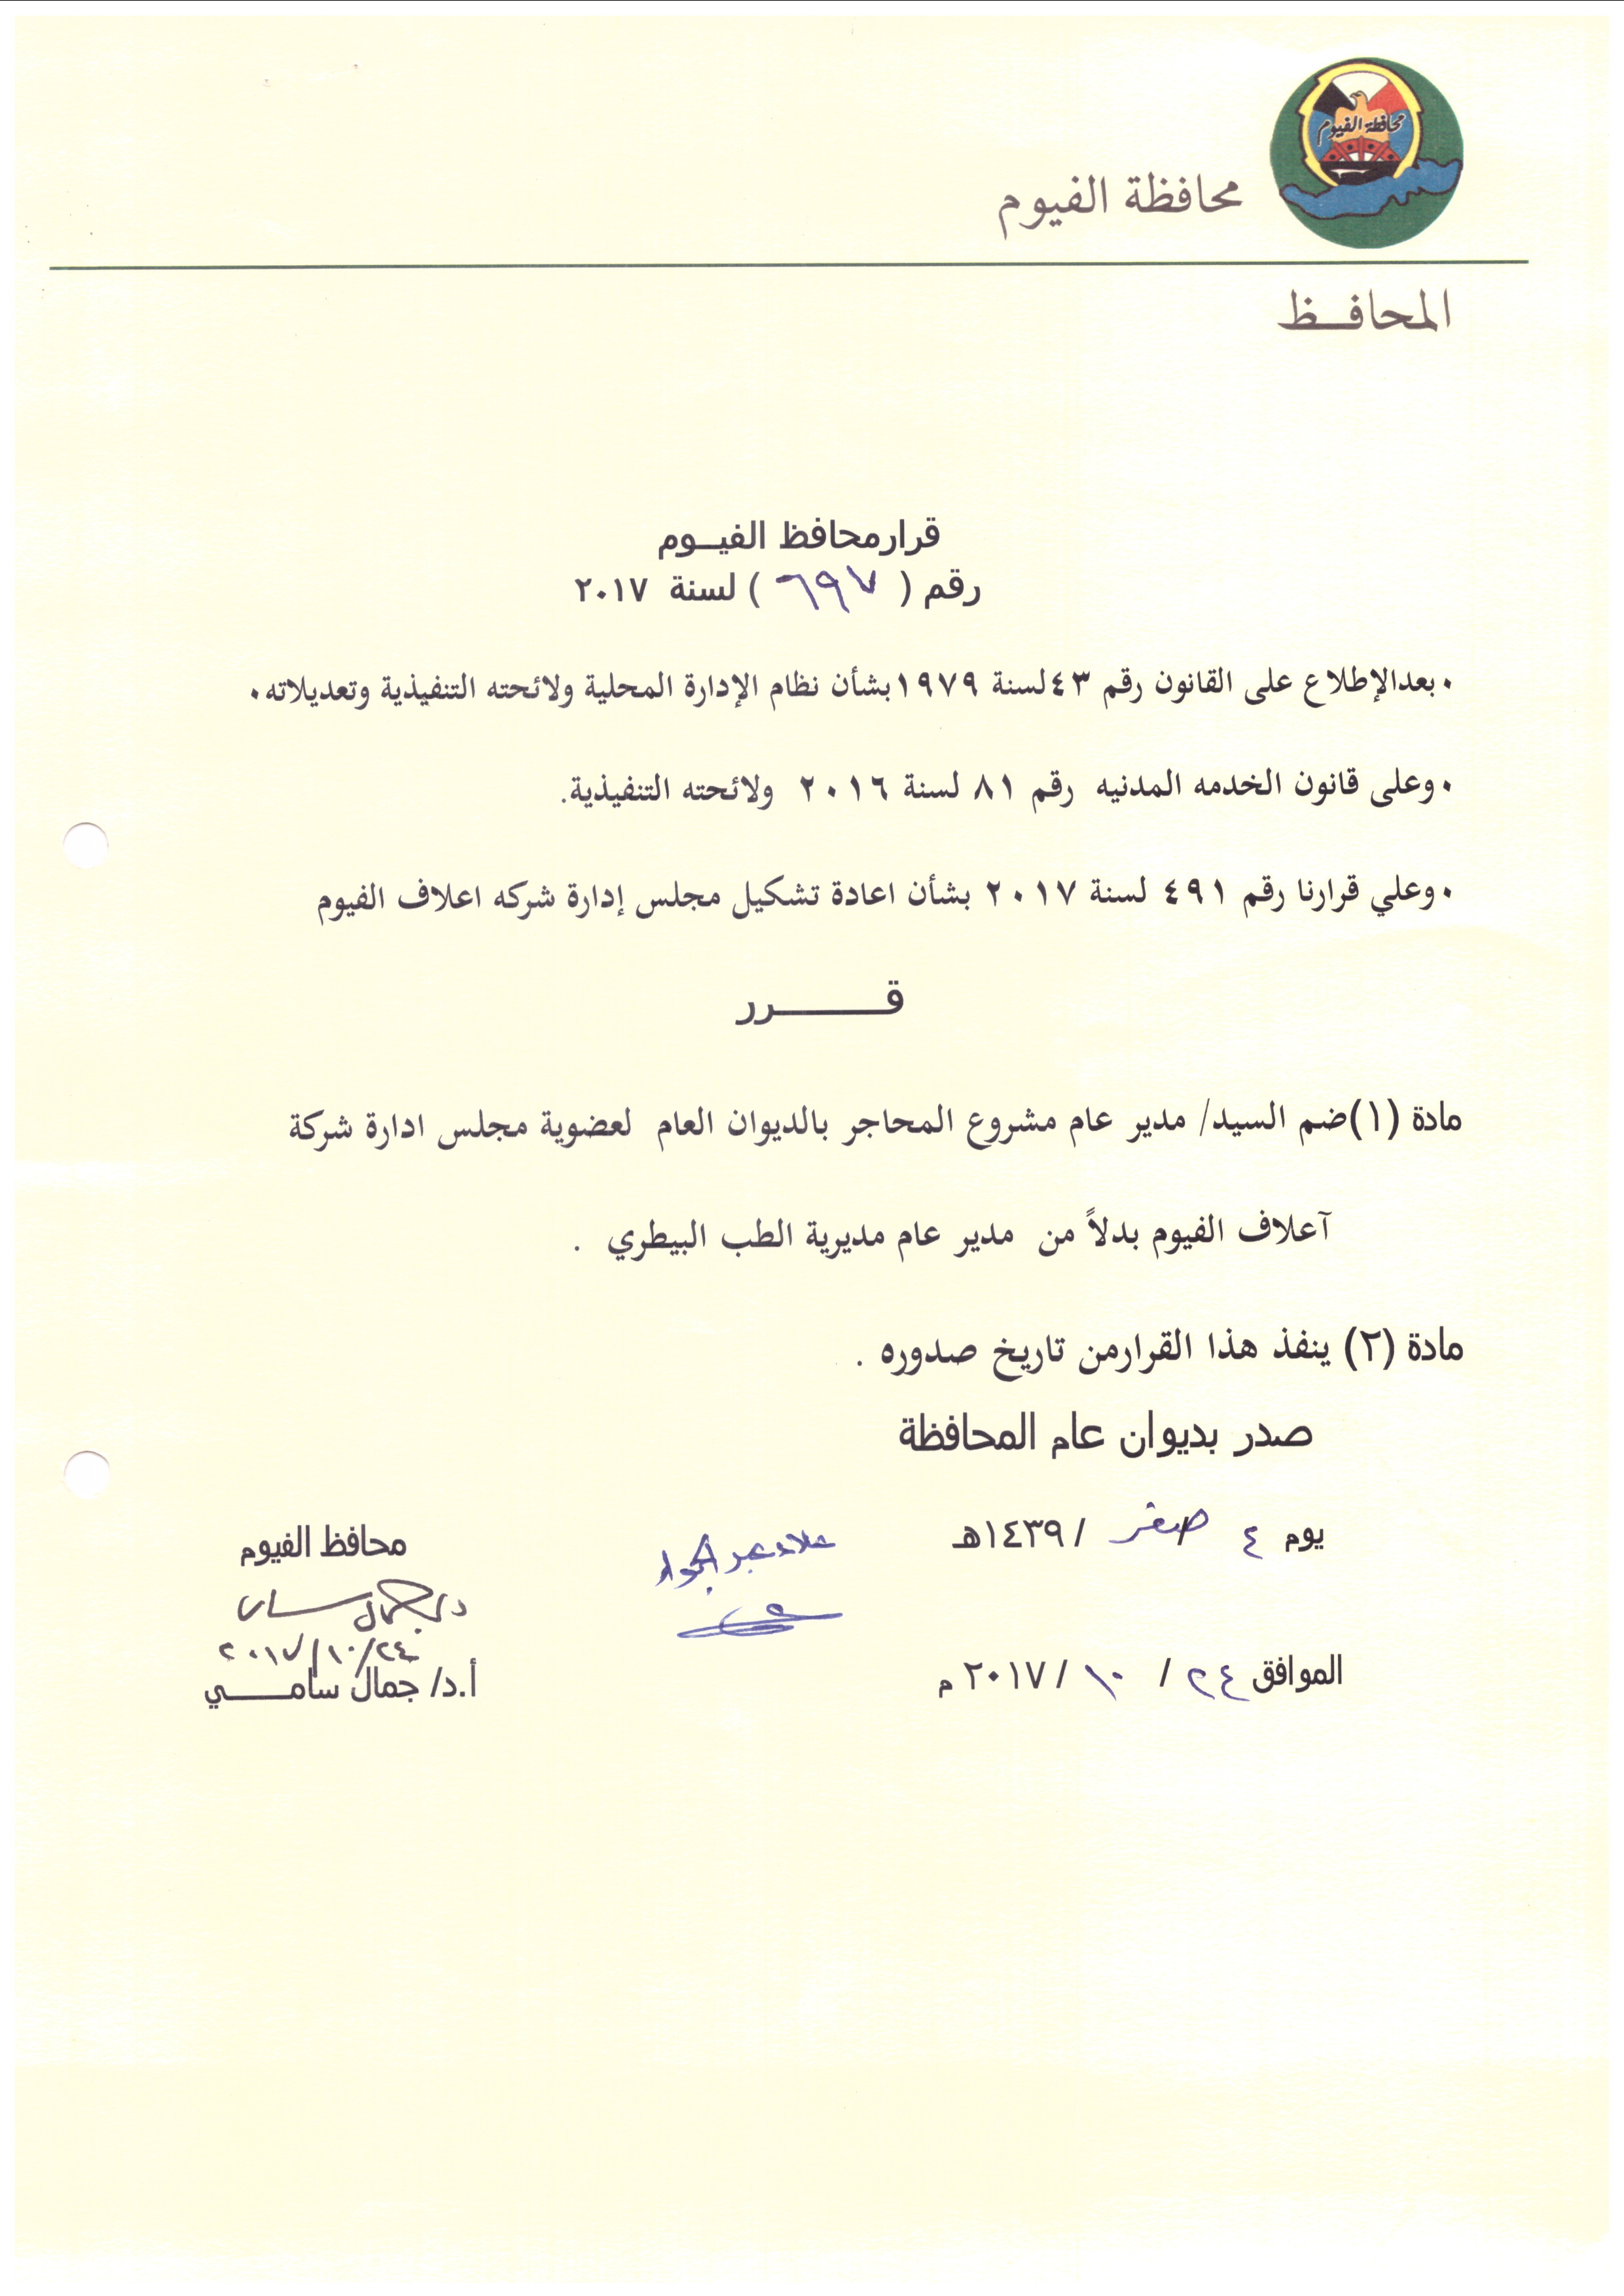 محافظة الفيوم
محافظة الفيوم
المحافــظ
قرارمحافظ الفيــوم
رقم ( ٦٩٧ ) لسنة ٢٠١٧
• بعدالإطلاع على القانون رقم ٤٣لسنة ١٩٧٩بشأن نظام الإدارة المحلية ولائحته التنفيذية وتعديلاته.
• وعلى قانون الخدمه المدنيه رقم ٨١ لسنة ٢٠١٦ ولائحته التنفيذية.
• وعلي قرارنا رقم ٤٩١ لسنة ٢٠١٧ بشأن اعادة تشكيل مجلس إدارة شركه اعلاف الفيوم
قـــــــرر
مادة (١)ضم السيد/ مدير عام مشروع المحاجر بالديوان العام لعضوية مجلس ادارة شركة
آعلاف الفيوم بدلاً من مدير عام مديرية الطب البيطري .
مادة (٢) ينفذ هذا القرارمن تاريخ صدوره .
صدر بديوان عام المحافظة
يوم ٤ / صفر / ١٤٣٩هـ
علاء عبد الجواد
الموافق ٢٤ / ١٠ / ٢٠١٧ م
محافظ الفيوم
د. جمال سامي
٢٠١٧/١٠/٢٤
أ.د/ جمال سامــــي